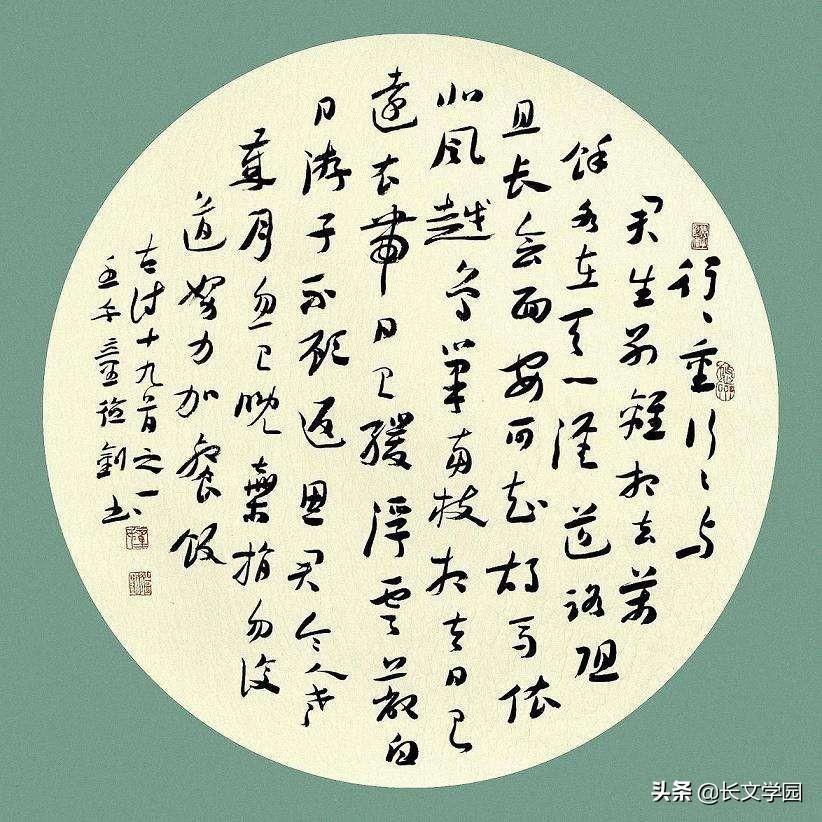 行〻重行〻与
君生别離相去萬
餘各在天一涯道路阻
且长会面安可知胡马依
北風越鸟巢南枝相去日已
遠衣带日已缓浮雲蔽白
日游子不顾返思君令人老
歲月忽已晚棄捐勿復
道努力加餐飯
古诗十九首之一
午 剑书
头条 @长文学园